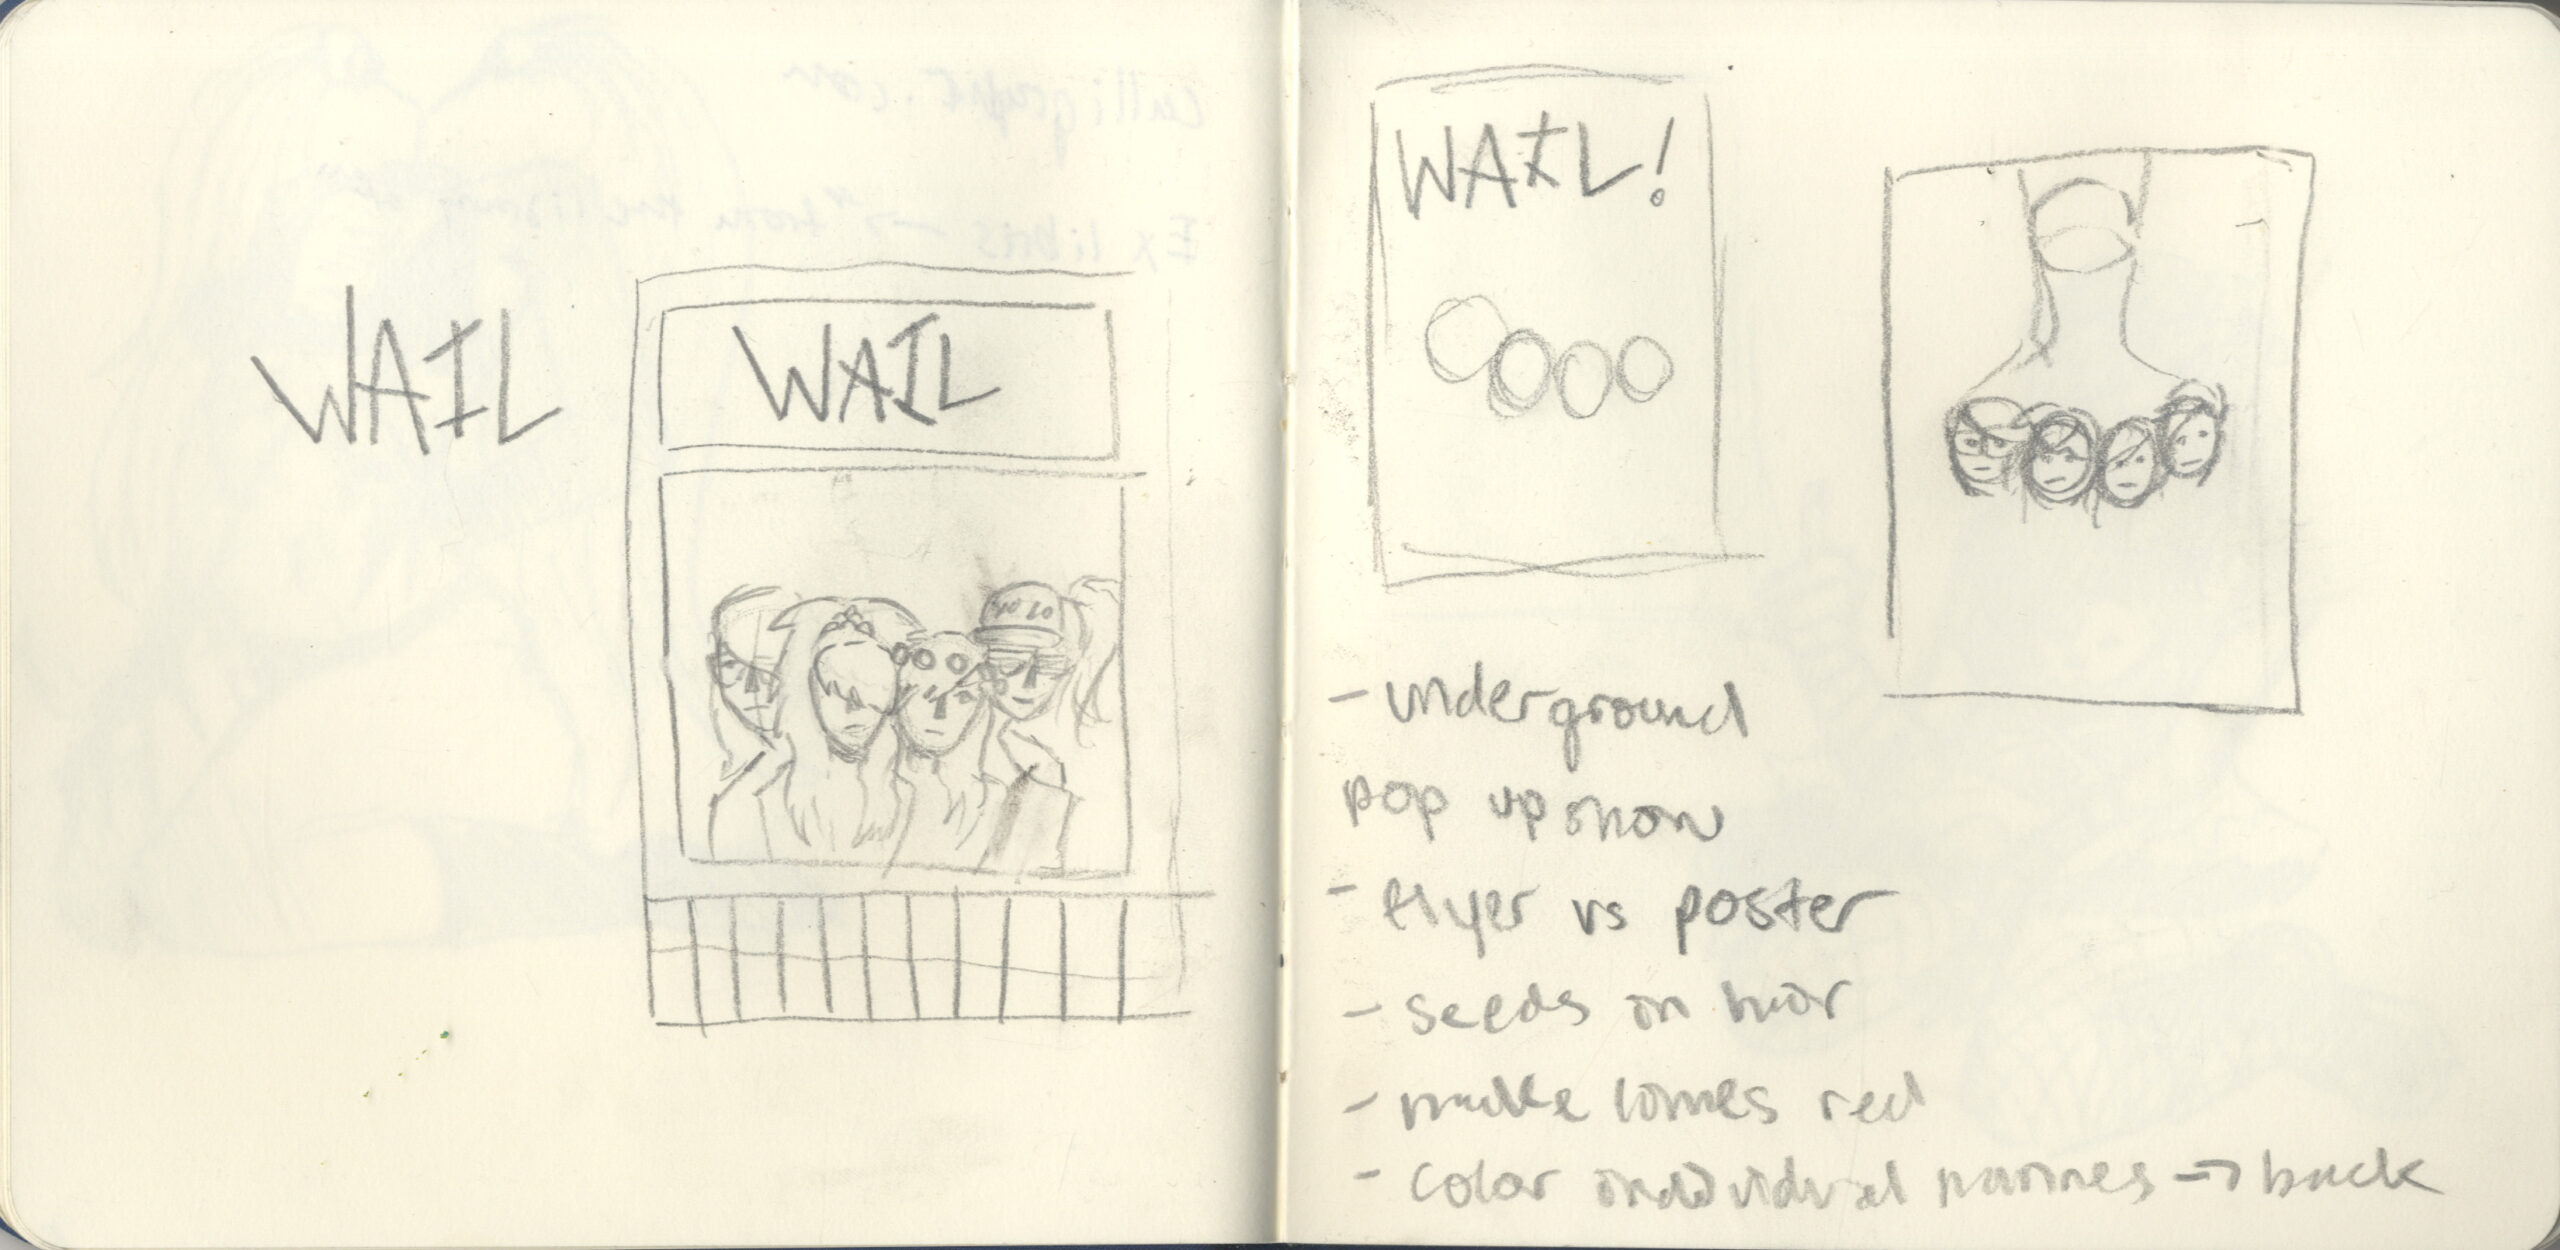 WAIL
WAIL
WAIL!
- underground
pop up show
- flyer vs poster
- seeds on hair
- make lames red
- color individual names → back